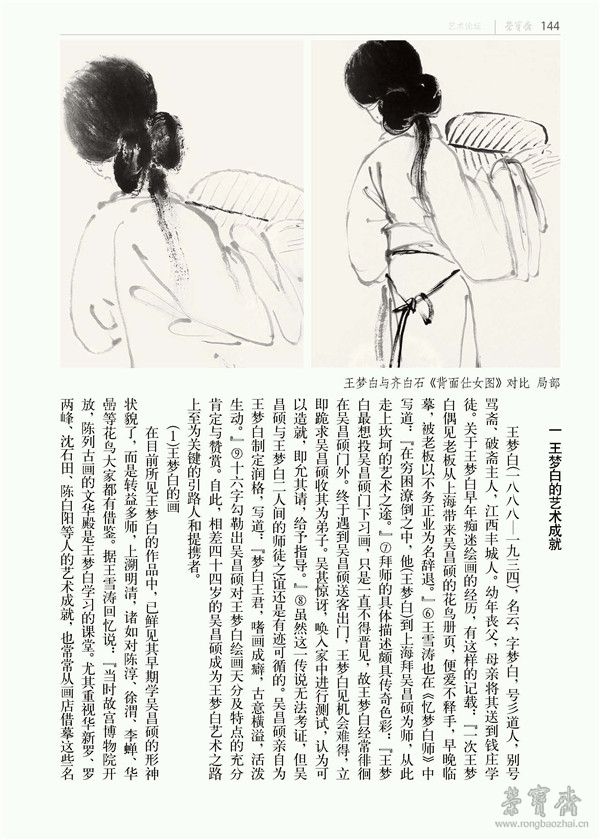 艺术论坛 荣宝斋 144
王梦白与齐白石《背面仕女图》对比 局部
一 王梦白的艺术成就
王梦白（一八八八—一九三四），名云，字梦白，号彡道人，别号
骂斋、破斋主人，江西丰城人。幼年丧父，母亲将其送到钱庄学
徒。关于王梦白早年痴迷绘画的经历，有这样的记载：『一次王梦
白偶见老板从上海带来吴昌硕的花鸟册页，便爱不释手，早晚临
摹，被老板以不务正业为名辞退。』⑥王雪涛也在《忆梦白师》中
写道：『在穷困潦倒之中，他（王梦白）到上海拜吴昌硕为师，从此
走上坎坷的艺术之途。』⑦拜师的具体描述颇具传奇色彩：『王梦
白最想投吴昌硕门下习画，只是一直不得晋见，故王梦白经常徘徊
在吴昌硕门外。终于遇到吴昌硕送客出门，王梦白见机会难得，立
即跪求吴昌硕收其为弟子。吴甚惊讶，唤入家中进行测试，认为可
以造就，即允其请，给予指导。』⑧虽然这一传说无法考证，但吴
昌硕与王梦白二人间的师徒之谊还是有迹可循的。吴昌硕亲自为
王梦白制定润格，写道：『梦白王君，嗜画成癖，古意横溢，活泼
生动。』⑨十六字勾勒出吴昌硕对王梦白绘画天分及特点的充分
肯定与赞赏。自此，相差四十四岁的吴昌硕成为王梦白艺术之路
上至为关键的引路人和提携者。
（1）王梦白的画
在目前所见王梦白的作品中，已鲜见其早期学吴昌硕的形神
状貌了，而是转益多师，上溯明清，诸如对陈淳、徐渭、李蝉、华
喦等花鸟大家都有借鉴。据王雪涛回忆说：『当时故宫博物院开
放，陈列古画的文华殿是王梦白学习的课堂。尤其重视华新罗、罗
两峰、沈石田、陈白阳等人的艺术成就，也常常从画店借摹这些名
荣宝斋
www.rongbaozhai.cn